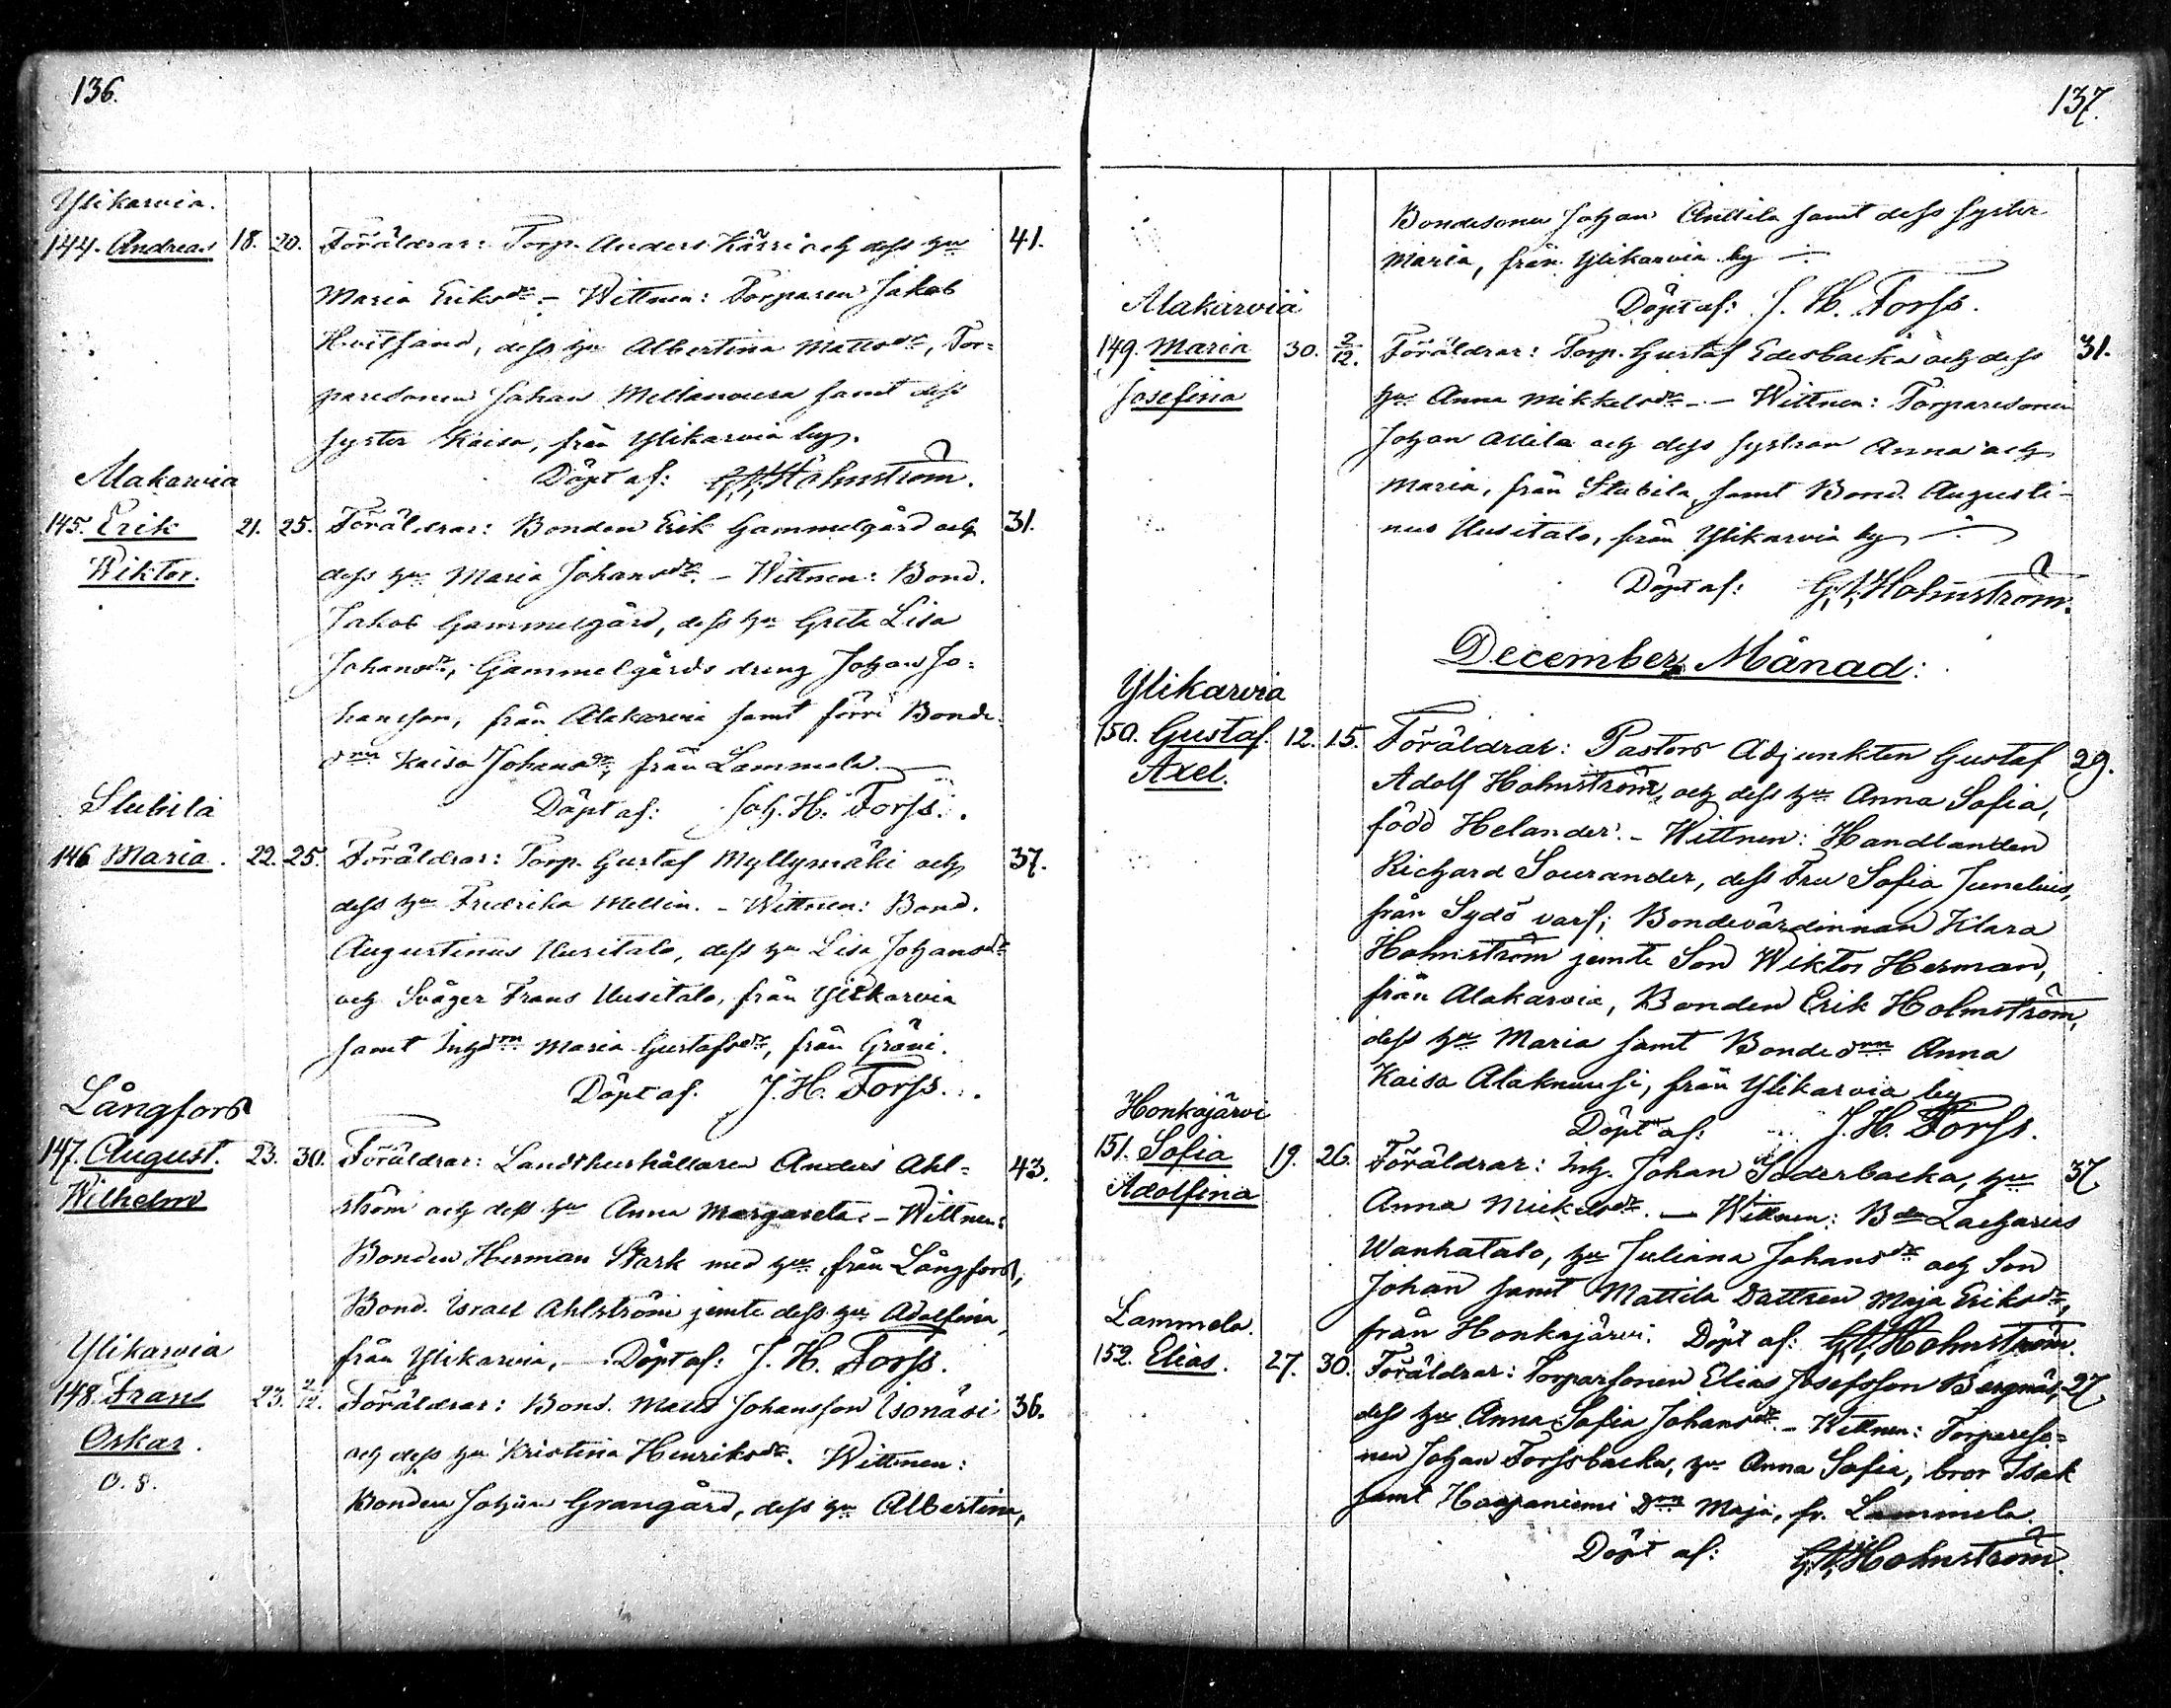 136.
Ylikarvia.
144. Andreas 18. 20. Föräldrar: Torp. Anders Kärri och dess hu 41.
Maria Eriksdr. – Wittnen: Torparen Jakob
Hvitsand, dess hu Albertina Mattsdr, Tor=
paresonen Johan Mellanoura samt dess
syster Kaisa, från Ylikarvia by.
Döpt af: G.A. Holmström.
Alakarvia
145. Erik 21. 25. Föräldrar: Bonden Erik Gammelgård och 31.
Wiktor. dess hu Maria Johansdr. – Wittnen: Bond.
Jakob Gammelgård, dess hu Greta Lisa
Johansdr, Gammelgårds dreng Johan Jo=
hansson, från Alakarvia samt förra Bonde
drn Kaisa Johansdr, från Lammela.
Döpt af: Joh. H. Forss.
Stubila
146 Maria. 22. 25. Föräldrar: Torp. Gustaf Myllymäki och 37.
dess hu Fredrika Mellin. – Wittnen: Bond.
Augustinus Uusitalo, dess hu Lisa Johansdr
och Svåger Frans Uusitalo, från Ylikarvia
samt Inhdrn Maria Gustafsdr, från Gröni.
Döpt af. J. H. Forss.
Långfors
147. August. 23. 30. Föräldrar: Landthushållaren Anders Ahl= 43.
Wilhelm ström och dess hu Anna Margareta. – Wittnen:
Bonden Herman Stark med hu, från Långfors,
Bond. Israel Ahlström jemte dess hu Adolfina,
från Ylikarvia, – Döpt af: J. H. Forss.
Ylikarvia
148 Frans 23. 2/12. Föräldrar: Bond. Matts Johansson Isonäsi 36.
Oskar. och dess hu Kristina Henriksdr. Wittnen:
O. S.
Bonden Johan Grangård, dess hu Albertina,
137.
Bondesonen Johan Anttila samt dess syster
Maria, från Ylikarvia by
Döpt af: J. H. Forss.
Alakarvia
149. Maria 30. 2/12. Föräldrar: Torp. Gustaf Edesbacka och dess 31.
Josefina hu Anna Mikkelsdr. – Wittnen: Torparesonen
Johan Attila och dess systrar Anna och
Maria, från Stubila, samt Bond. Augusti-
nus Uusitalo, från Ylikarvia by
Döpt af: G.A. Holmström.
December Månad:
Ylikarvia
150. Gustaf. 12. 15. Föräldrar: Pastors Adjunkten Gustaf 29.
Axel. Adolf Holmström, och dess hu Anna Sofia,
född Helander. – Wittnen: Handlanden
Richard Sourander, dess Fru Sofia Junelius,
från Sydö varf; Bondevärdinnan Klara
Holmström jemte Son Wiktor Herman,
från Alakarvia, Bonden Erik Holmström,
dess hu Maria samt Bondedrn Anna
Kaisa Alaknuusi, från Ylikarvia by.
Döpt af: J. H. Forss.
Honkajärvi
151. Sofia 19. 26. Föräldrar: Inh. Johan Söderbacka, hu 37.
Adolfina Anna Mickelsdr. – Wittnen: Bden Zacharias
Wanhatalo, hu Juliana Johansdr och Son
Johan samt Mattila Dottren Maja Eriksdr,
från Honkajärvi. Döpt af: G.A. Holmström.
Lammela.
152. Elias. 27. 30. Föräldrar: Torparsonen Elias Josefsson Bergnäs, 27.
dess hu Anna Sofia Johansdr. – Wittnen: Torpareso=
nen Johan Forssbacka, hu Anna Sofia, bror Isak
samt Haapaniemi Drn Maja, fr. Lammela.
Döpt af: G.A. Holmström.